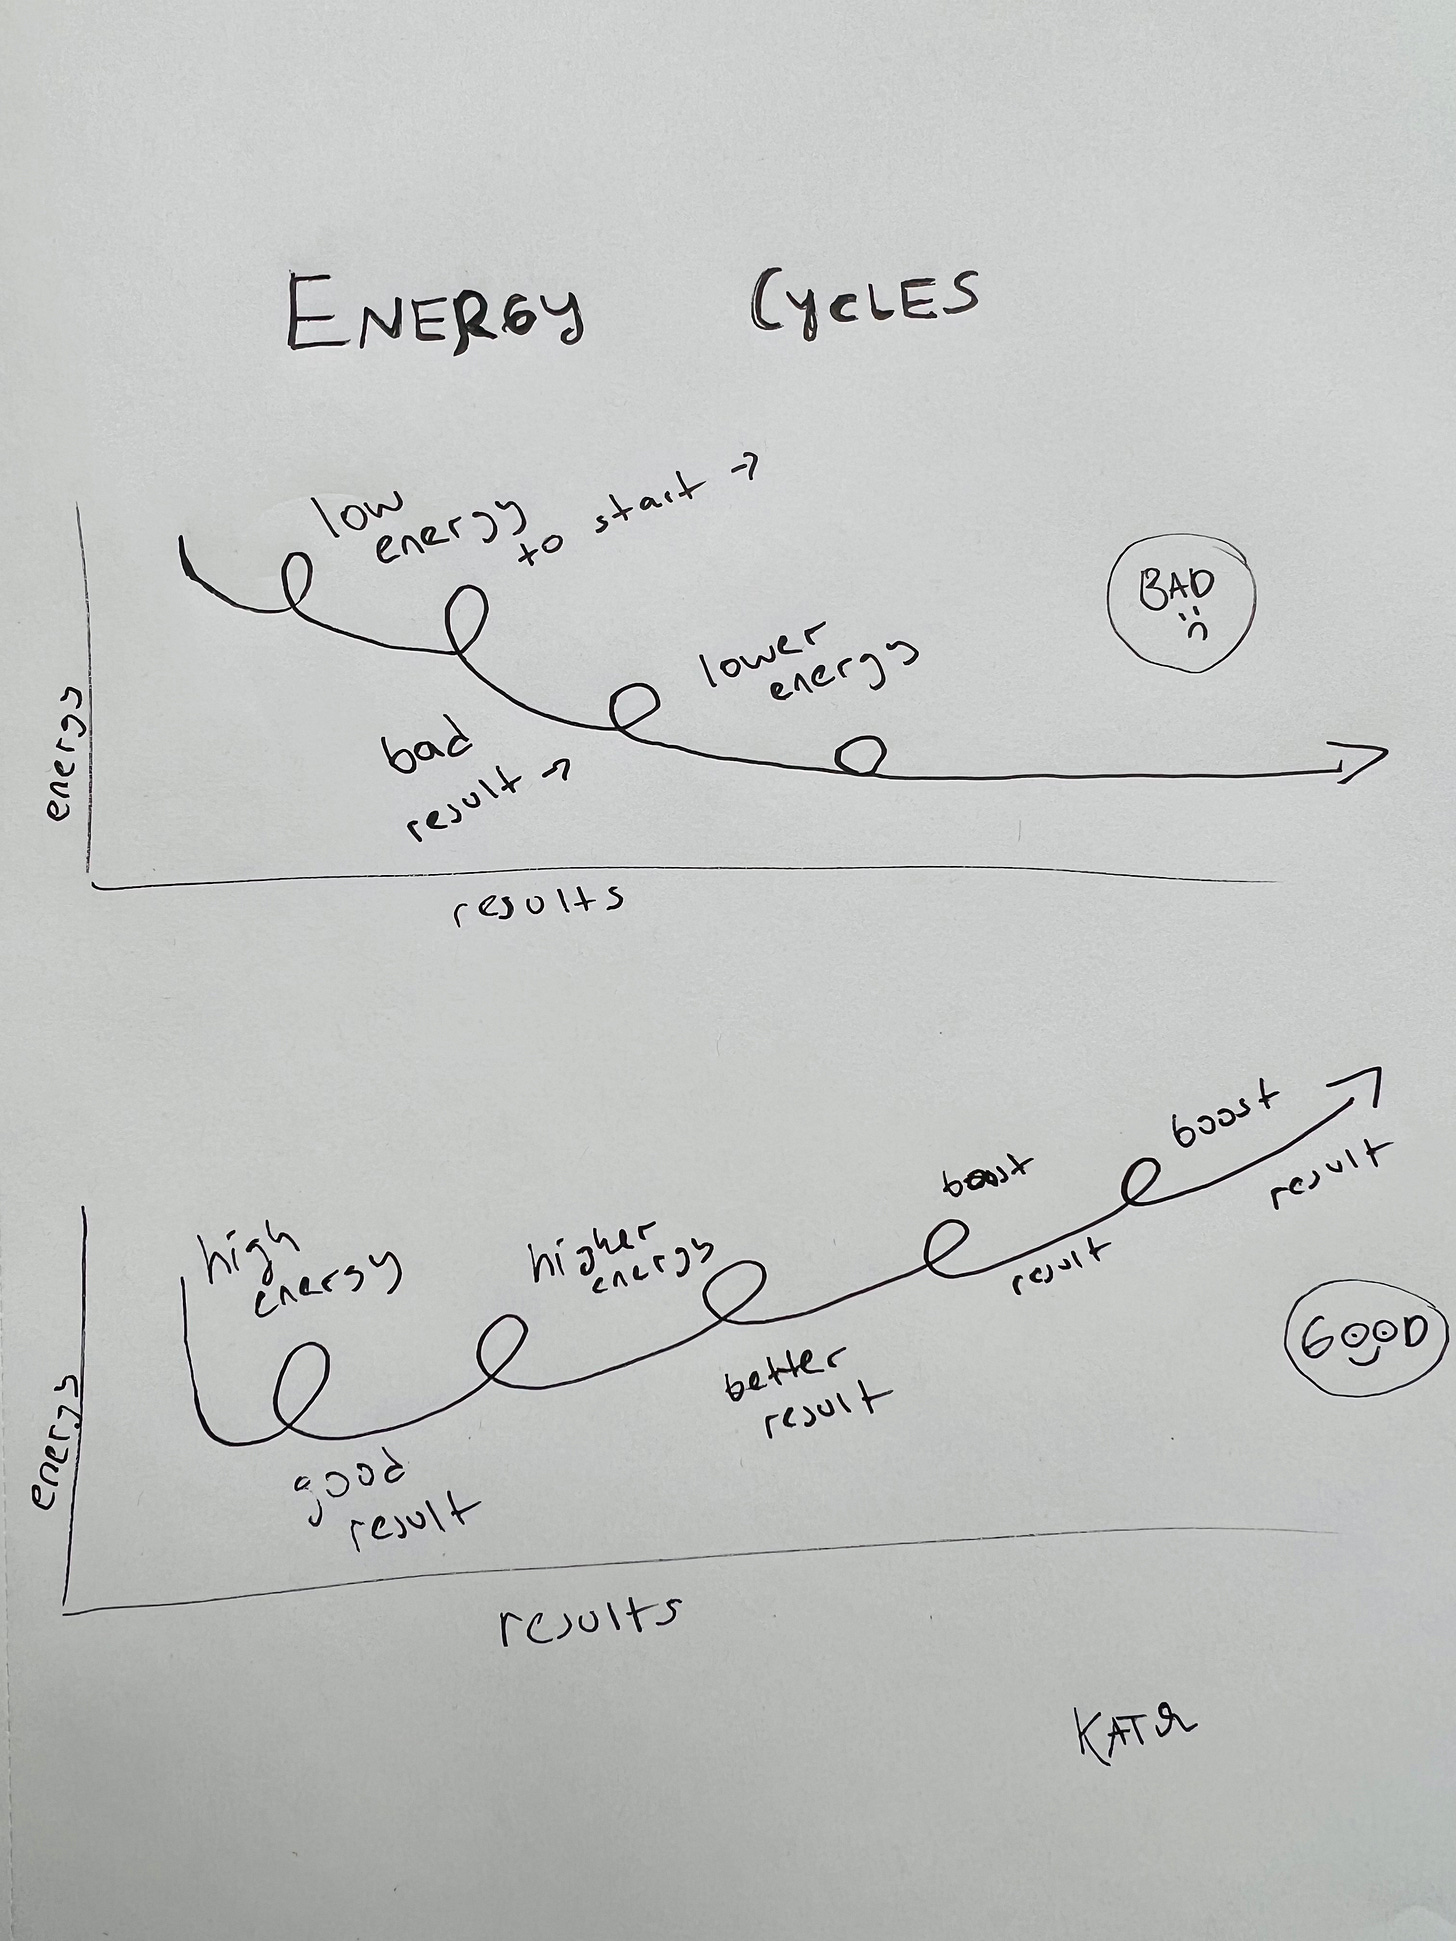 ENERGY CYCLES
low
energy
to start →
BAD
lower
energy
bad
result →
energy
results
boost
boost
result
high
energy
higher
energy
result
GOOD
better
result
good
result
energy
results
KATЯ